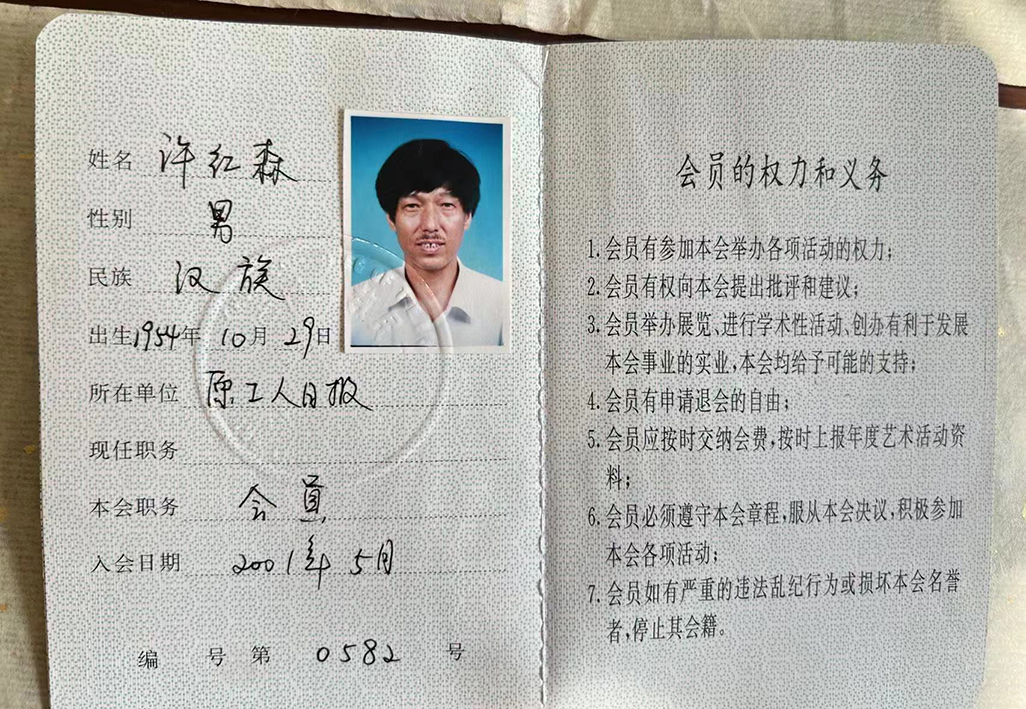 姓名 许红森
性别 男
民族 汉族
出生1954年 10月 29日
所在单位 原工人日报
现任职务
本会职务 会员
入会日期 2001年 5月
编 号 第 0582 号
会员的权力和义务
1. 会员有参加本会举办各项活动的权力;
2. 会员有权向本会提出批评和建议;
3. 会员举办展览、进行学术性活动、创办有利于发展
本会事业的实业,本会均给予可能的支持;
4. 会员有申请退会的自由;
5. 会员应按时交纳会费,按时上报年度艺术活动资
料;
6. 会员必须遵守本会章程,服从本会决议,积极参加
本会各项活动;
7. 会员如有严重的违法乱纪行为或损坏本会名誉
者,停止其会籍。